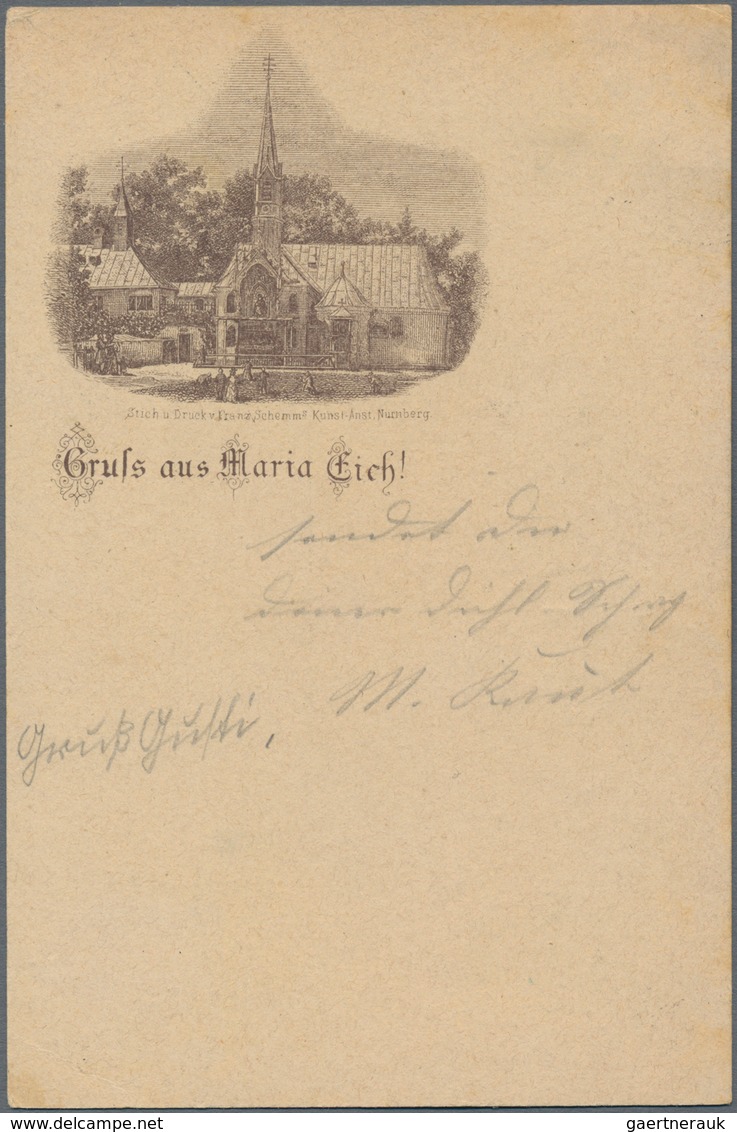 Stich u Druck v. Franz Schemm's Kunst-Anst. Nürnberg.
Gruſs aus Maria Eich!
sendet
M. Kaut
Gruß Gusti,
© gaertnerauk